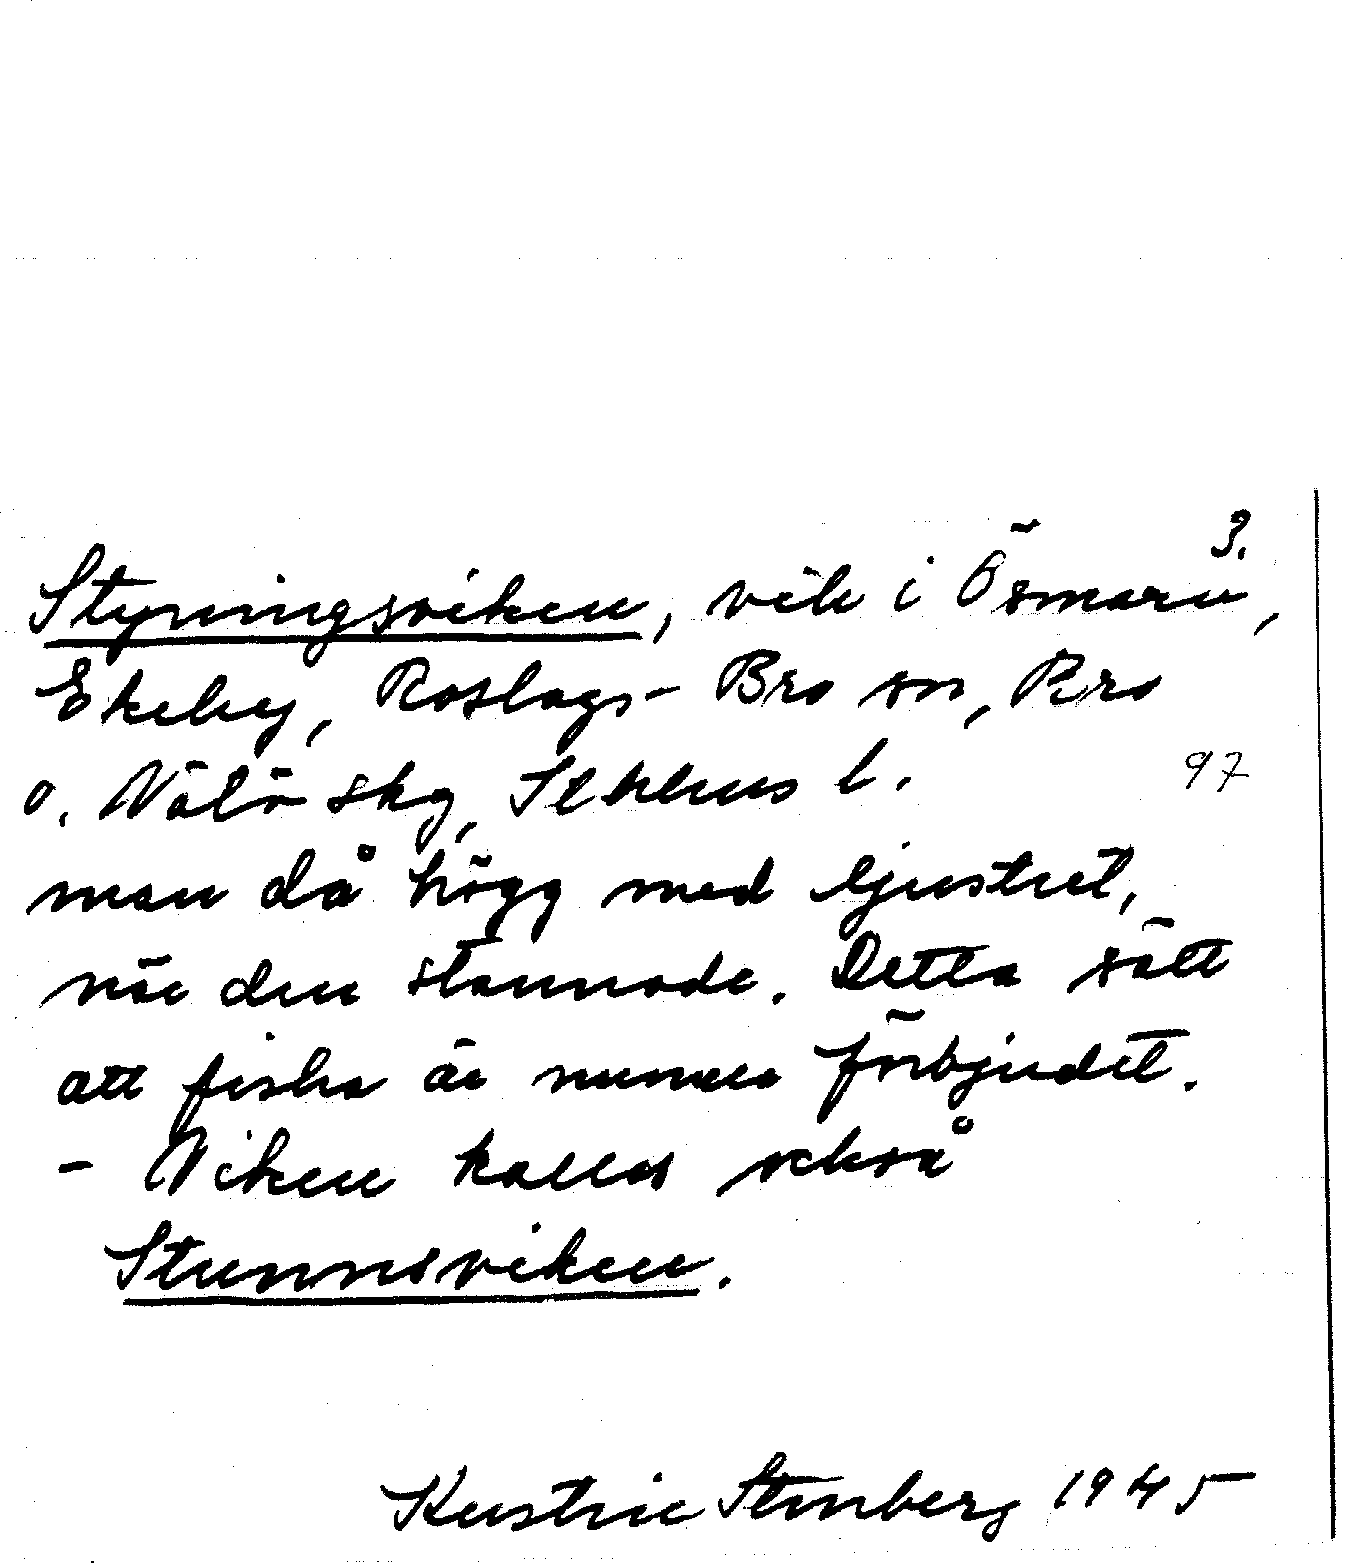 3.
Styrningsviken, vik i Ösmarn,
Ekeby, Roslags-Bro sn, Bro
o. Vätö skg, Sthlms l.
97
man då högg med ljustret,
när den stannade. Detta sätt
att fiska är numera förbjudet.
- Viken kallas också
Stunnsviken.
Kerstin Stenberg 1945